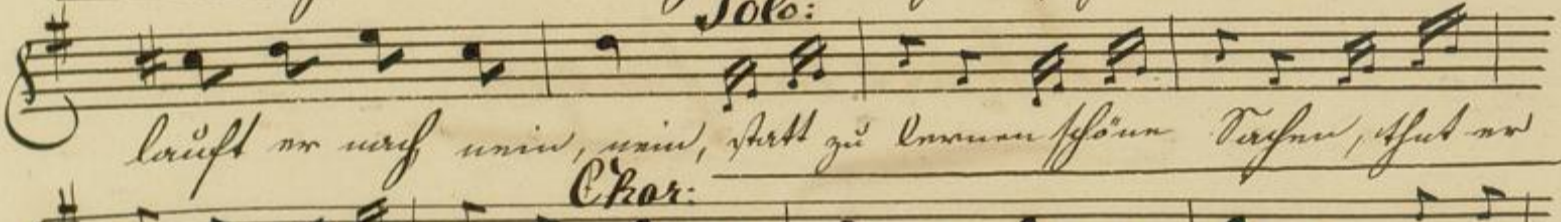 Solo:
lauft er nach nein, nein, statt zu lernen schöne Sachen, thut er
Chor: